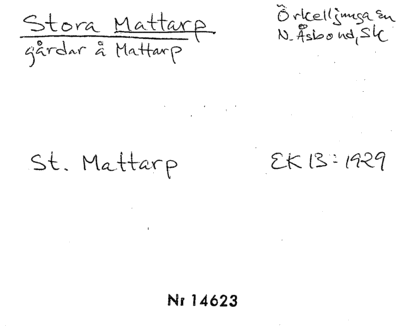 Stora Mattarp
gårdar å Mattarp
Örkelljunga sn
N. Åsbo hd, Sk
St. Mattarp
EK 13: 1929
Nr 14623